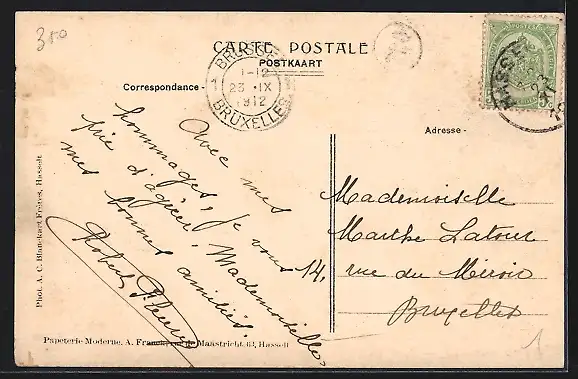 350
CARTE POSTALE
POSTKAART
Correspondance -
Adresse -
BRUSSEL
1-12
1 23 IX 1
1912
BRUXELLES
HASSELT
Avec mes
hommages, je vous
prie d'agréer, Mademoiselle,
mes bonnes amitiés.
Robert
Mademoiselle
Marthe Latour
14, rue du Miroir
Bruxelles
Phot. A. C. Blanckart Frères, Hasselt
Papeterie Moderne, A. Franck, rue de Maastricht, 63, Hasselt
1